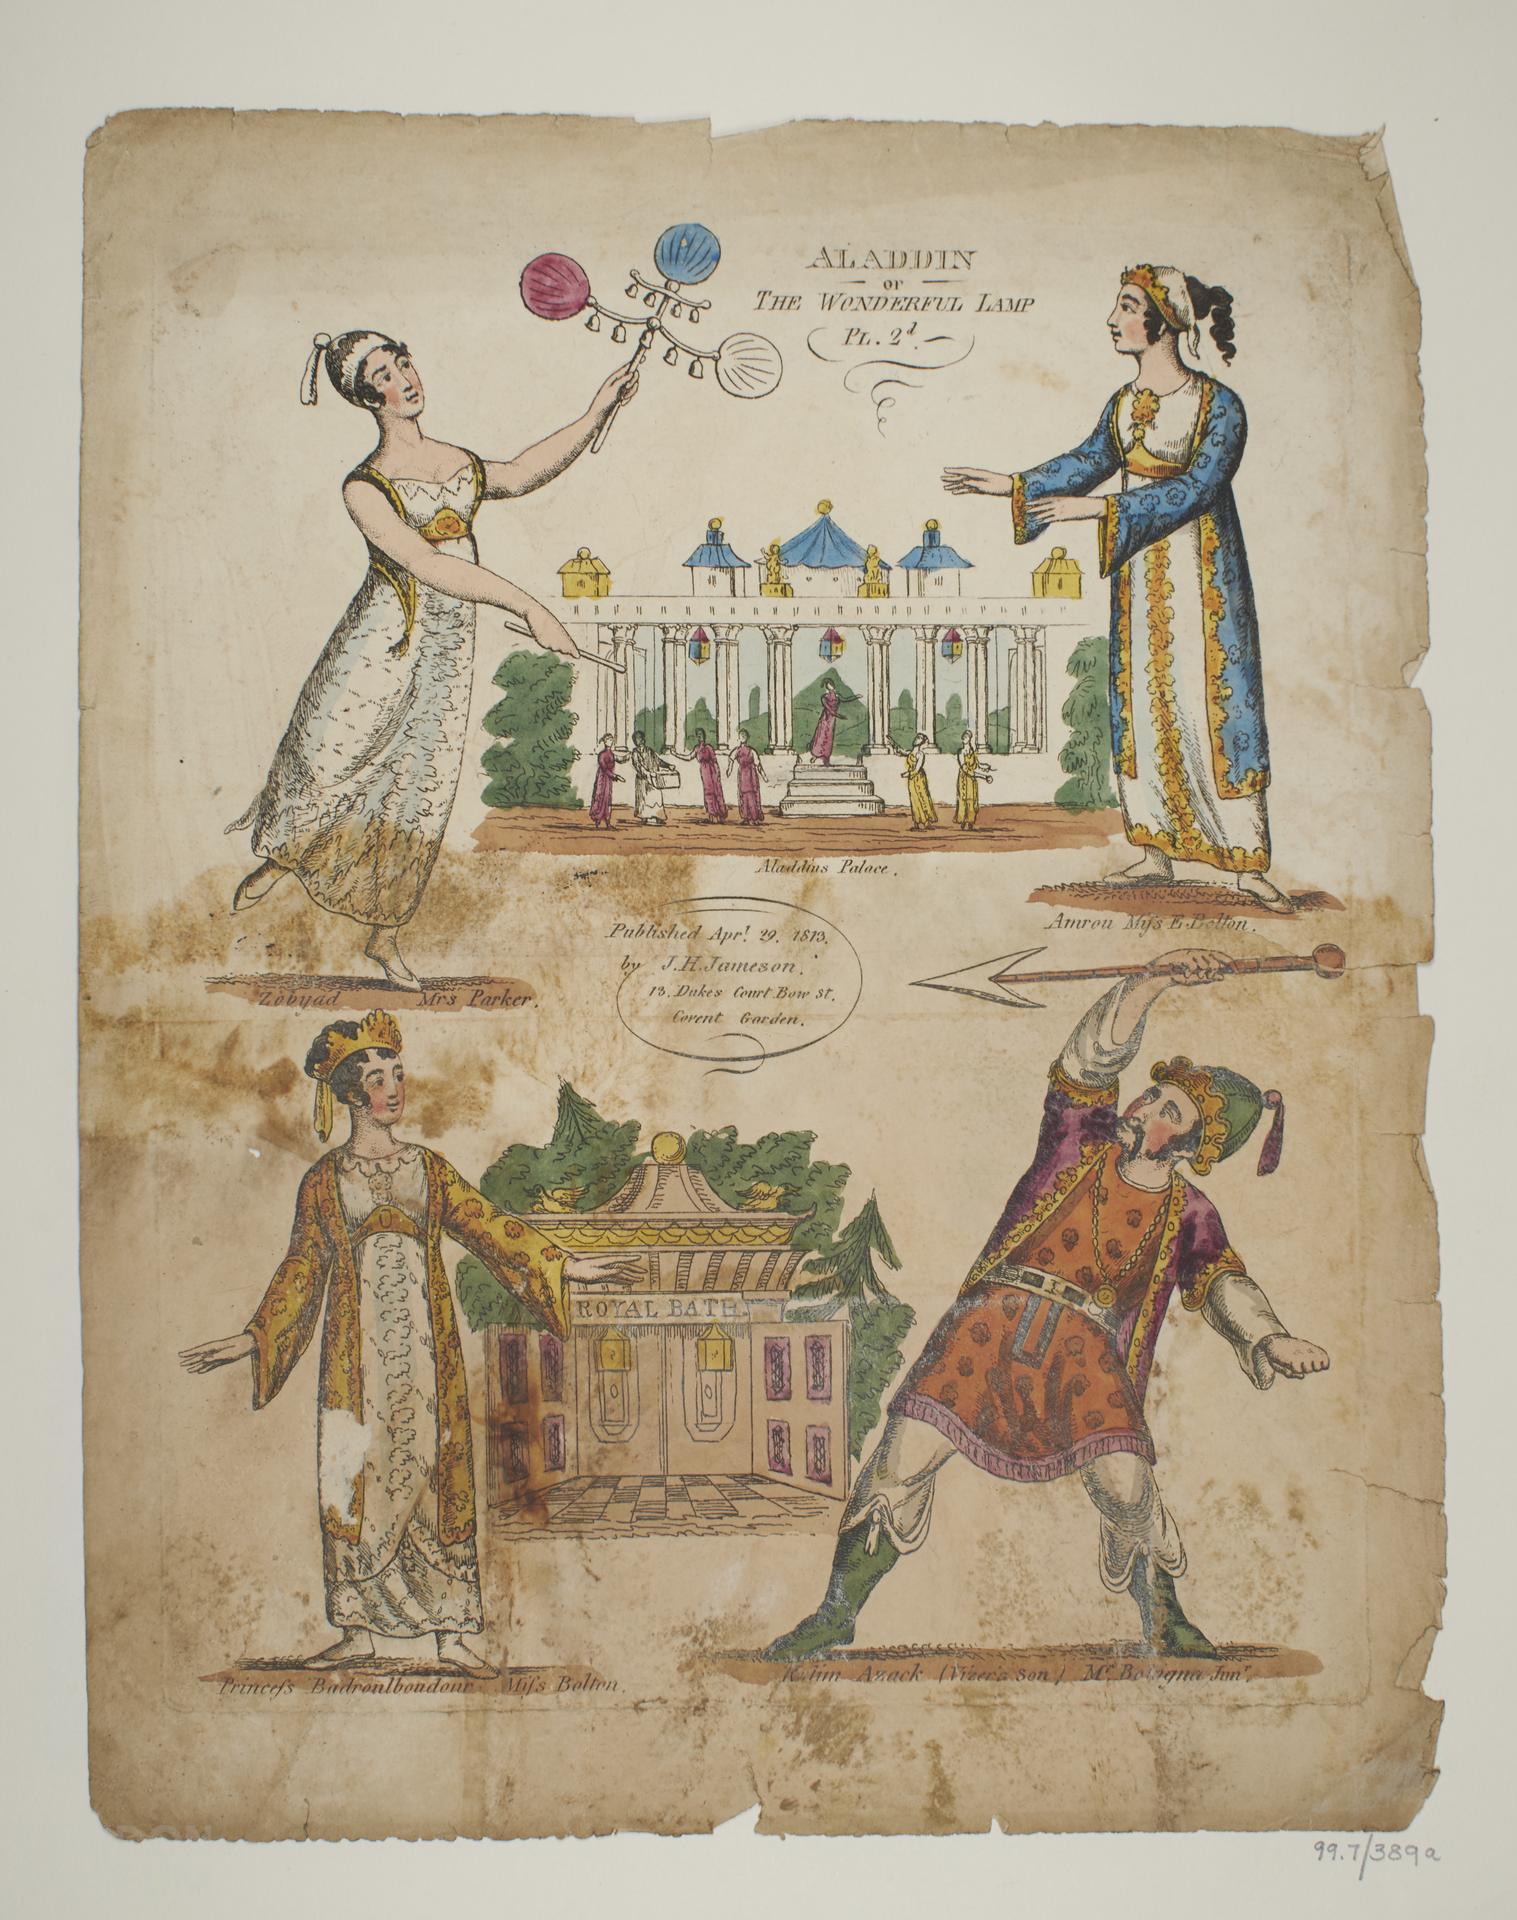 ALADDIN
or
THE WONDERFUL LAMP
PL. 2d.
Aladdins Palace.
Amrou Miſs E. Bolton.
Zobyad Mrs Parker.
Published Aprl. 29. 1813.
by J.H. Jameson.
13. Dukes Court Bow St.
Covent Garden.
ROYAL BATH.
Princeſs Badroulboudour Miſs Bolton.
Azack (Vizers son) Mr. Bologna Junr.
99.7/389a